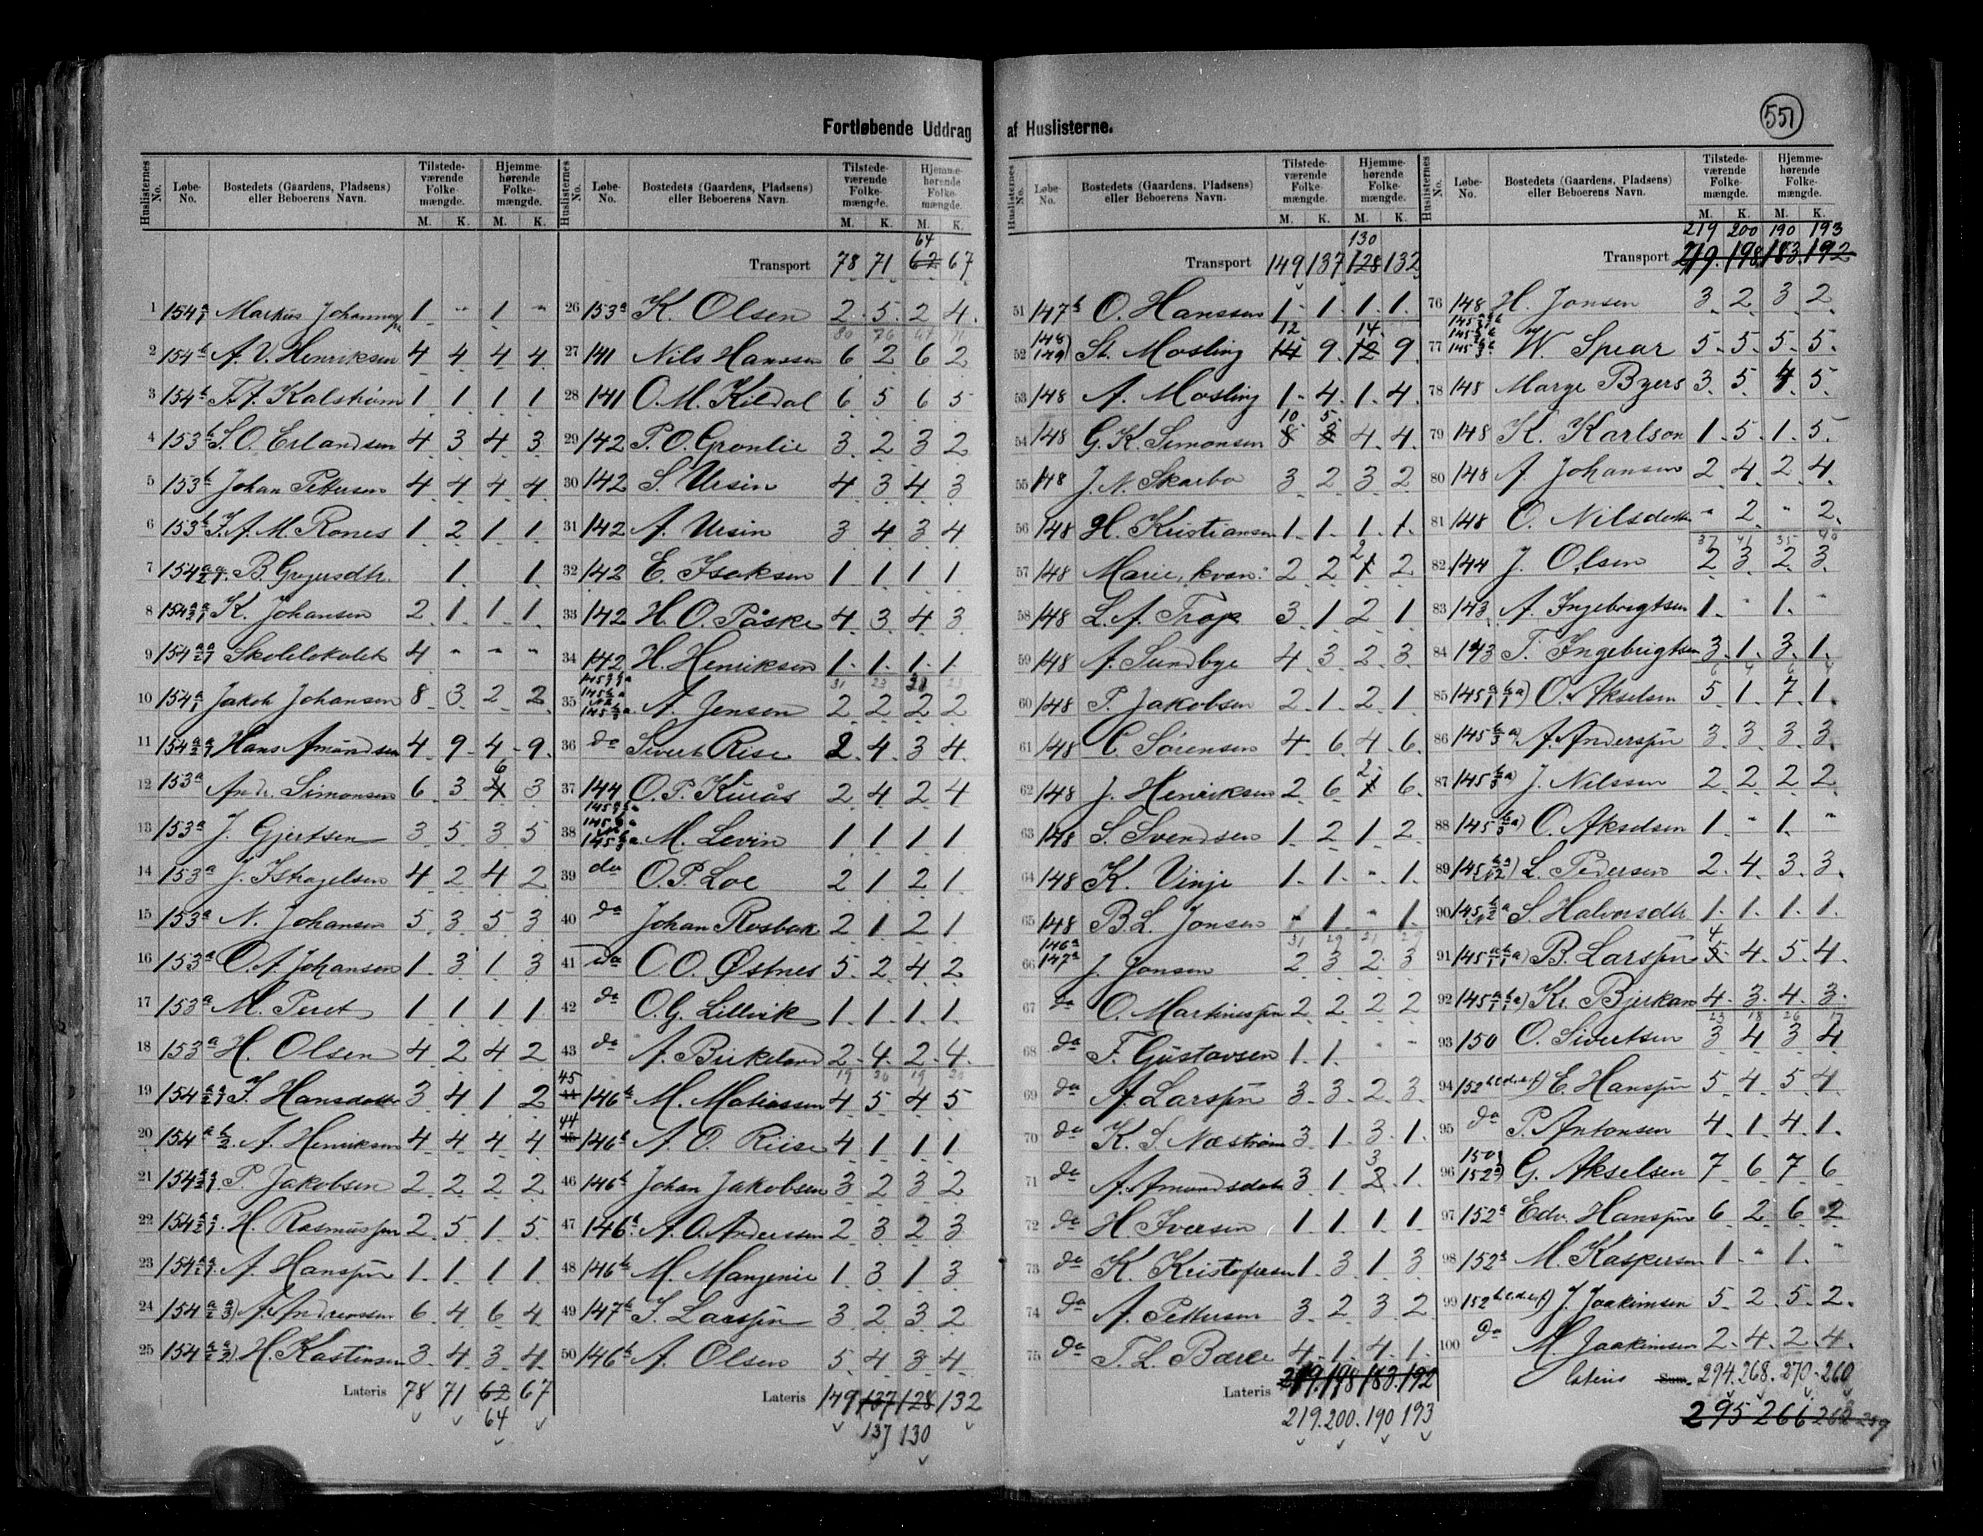 Fortløbende Uddrag af Huslisterne.
551
Huslisternes No. Løbe-No. Bostedets (Gaardens, Pladsens) eller Beboerens Navn. Tilstedeværende Folkemængde. M. K. Hjemmehørende Folkemængde. M. K.
1 154 Markus 1 - 1 -
2 154b A. V. Henriksen 4 4 4 4
3 154b T. A. Kalstrøm 1 1 1 1
4 153b S. O. Erlandsen 4 3 4 3
5 153b Johan Pettersen 4 4 4 4
6 153b J. A. M. Rones 1 2 1 1
7 154 B. Gregersdtr. 1 1
8 154 K. Johansen 2 1 1 1
9 154 Skolelokalet 4 - - -
10 154 Jakob Johansen 8 3 2 2
11 154 Hans Amundsen 4 9 4 9
12 153a Andr. Simonsen 6 3 6 3
13 153a J. Gjertsen 3 5 3 5
14 153a J. Israelsen 4 2 4 2
15 153a N. Johansen 5 3 5 3
16 153a O. A. Johansen 1 3 1 3
17 153a M. Peret 1 1 1 1
18 153a H. Olsen 4 2 4 2
19 154 J. Hansdatter 3 4 1 2
20 154 A. Henriksen 4 4 4 4
21 154 P. Jakobsen 2 2 2 2
22 154 H. Rasmussen 2 5 1 5
23 154 A. Hanssen 1 1 1 1
24 154 A. Andreassen 6 4 6 4
25 154 H. Kastensen 3 4 3 4
Lateris 78 71 62 67
64
Huslisternes No. Løbe-No. Bostedets (Gaardens, Pladsens) eller Beboerens Navn. Tilstedeværende Folkemængde. M. K. Hjemmehørende Folkemængde. M. K.
64
Transport 78 71 62 67
26 153a K. Olsen 2 5 2 4
27 141 Nils Hanssen 6 2 6 2
28 141 O. M. Kildal 6 5 6 5
29 142 P. O. Grønlie 3 2 3 2
30 142 S. Ursin 4 3 4 3
31 142 A. Ursin 3 4 3 4
32 142 E. Isaksen 1 1 1 1
33 142 H. O. Påske 4 3 4 3
34 142 H. Henriksen 1 1 1 1
35 145 A. Jensen 2 2 2 2
36 do Sivert Rise 2 4 3 4
37 144 O. P. Kurås 2 4 2 4
38 145 M. Levin 1 1 1 1
39 do O. P. Loe 2 1 2 1
40 do Johan Rosbak 2 1 2 1
41 do O. O. Østnes 5 2 4 2
42 do O. G. Lillvik 1 1 1 1
43 do A. Birkeland 2 4 2 4
45 146b M. Mathiassen 4 5 4 5
44 146b A. O. Riise 4 1 1 1
46 146b Johan Jakobsen 3 2 3 2
47 146b A. O. Anderssen 2 3 2 3
48 146b M. Manzenie 1 3 1 3
49 147b J. Larssen 3 2 3 2
50 146b A. Olsen 5 4 3 4
Lateris 149 137 128 132
137 130
Huslisternes No. Løbe-No. Bostedets (Gaardens, Pladsens) eller Beboerens Navn. Tilstedeværende Folkemængde. M. K. Hjemmehørende Folkemængde. M. K.
130
Transport 149 137 128 132
51 147b O. Hanssen 1 1 1 1
52 148 149 St. Mosling 12 9 14 9
53 148 A. Mosling 1 4 1 4
54 148 G. K. Simonsen 10 5 4 4
55 148 J. N. Skarbo 3 2 3 2
56 148 H. Kristiansen 1 1 1 1
57 148 Marie, kvæn: 2 2 2 2
58 148 L. A. Trap 3 1 2 1
59 148 A. Sundbye 4 3 2 3
60 148 P. Jakobsen 2 1 2 1
61 148 C. Sørensen 4 6 4 6
62 148 J. Henriksen 2 6 2 6
63 148 S. Svendsen 1 2 1 2
64 148 K. Vinje 1 1 - 1
65 148 B. L. Jonsen 1 - 1
66 146a 147a J. Jonsen 2 3 2 3
67 do O. Martinussen 2 2 2 2
68 do F. Gustavsen 1 1 - -
69 do A. Larssen 3 3 2 3
70 do K. S. Næstrøm 3 1 3 1
71 do A. Amundsdatter 3 1 3 1
72 do H. Iversen 1 1 1 1
73 do K. Kristofersen 1 3 1 3
74 do A. Pettersen 3 2 3 2
75 do T. L. Barer 4 1 4 1
Lateris 219 198 183 192
219 200 190 193
Huslisternes No. Løbe-No. Bostedets (Gaardens, Pladsens) eller Beboerens Navn. Tilstedeværende Folkemængde. M. K. Hjemmehørende Folkemængde. M. K.
219 200 190 193
Transport 219 198 183 192
76 148 H. Jonsen 3 2 3 2
77 145 W. Spear 5 5 5 5
78 148 Marge Byers 3 5 4 5
79 148 K. Karlson 1 5 1 5
80 148 A. Johansen 2 4 2 4
81 148 O. Nilsdatter - 2 - 2
82 144 J. Olsen 2 3 2 3
83 143 A. Ingebrigtsen 1 - 1 -
84 143 T. Ingebrigtsen 3 1 3 1
85 145 O. Akselsen 5 1 7 1
86 145 A. Anderssen 3 3 3 3
87 145 J. Nilssen 2 2 2 2
88 145 O. Akselsen 1 - 1 -
89 145 L. Pedersen 2 4 3 3
90 145 S. Halvorsdtr. 1 1 1 1
91 145 B. Larssen 4 4 5 4
92 145 Kr. Bjerkan 4 3 4 3
93 150 O. Sivertsen 3 4 3 4
94 152 E. Hanssen 5 4 5 4
95 do P. Antonsen 4 1 4 1
96 150 152 G. Akselsen 7 6 7 6
97 152a Edv. Hanssen 6 2 6 2
98 152a M. Kaspersen 1 - 1 -
99 152 J. Joakimsen 5 2 5 2
100 do M. Joakimsen 2 4 2 4
Lateris Sum. 294 268 270 260
295 266 262 259